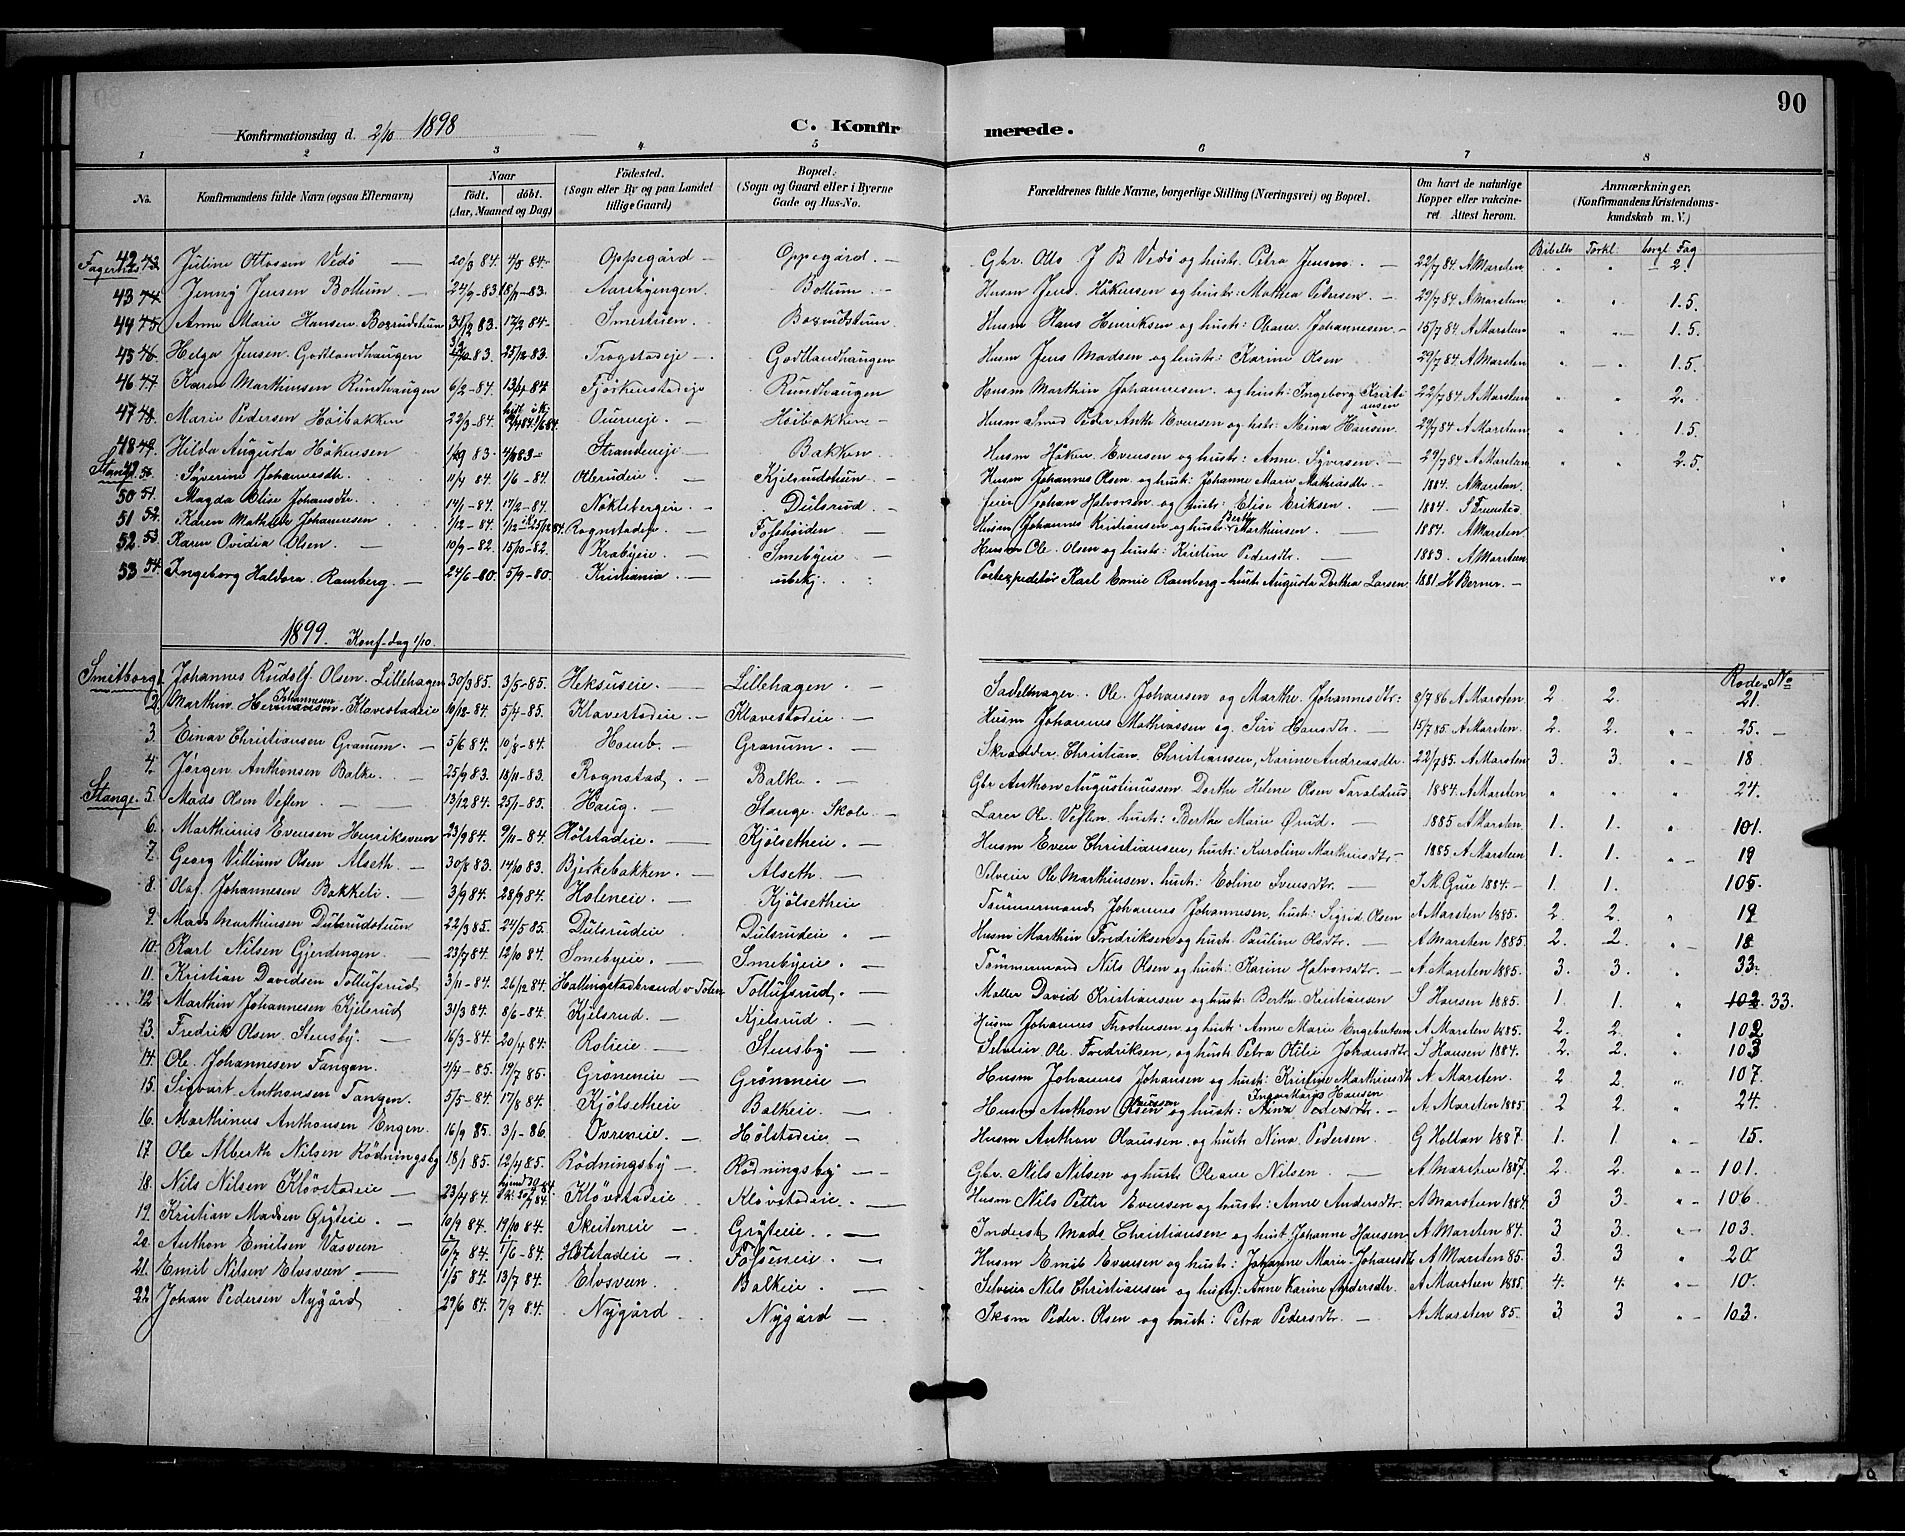 90
Konfirmationsdag d. 2/10 1898
C. Konfirmerede.
1 2 3 4 5 6 7 8
No.
Konfirmandens fulde Navn (ogsaa Efternavn)
Naar
født. døbt.
(Aar, Maaned og Dag)
Födested. (Sogn eller By og paa Landet tillige Gaard)
Bopæl. (Sogn og Gaard eller i Byerne Gade og Hus-No.
Forældrenes fulde Navne, borgerlige Stilling (Næringsvei) og Bopæl.
Om havt de naturlige Kopper eller vakcineret. Attest herom.
Anmærkninger. (Konfirmandens Kristendomskundskab m. V.)
Bibelh Forkl. borgl. Fag
Fagernes 42 43 Juline Ottosen Vedø — 20/3 84 4/5 84 Oppegård — Oppegård. — Gbr. Otto J B Vedø og hustr. Petra Jensen — 22/7 84 A Marsten " " 2.
43 44 Jenny Jensen Bollum — 24/9-83 18/11-83. Aarsbyengen. Bollum. — Husm Jens Håkensen og hustr: Mathea Pedersen — 29/7 84 A Marsten " " 1.5.
44 45 Anne Marie Hansen Bogrudstuen 31/12 83. 17/2 84 Smestuen. Bogrudstuen Husm Hans Henriksen og hustr: Oleane Johannesen — 15/7 84 A Marsten " " 1.5.
45 46 Helga Jensen Godtlandhaugen 83. 25/12-83. Trogstadeje —. Godtlandhaugen Husm Jens Madsen og hustr: Karine Olsen 29/7 84 A Marsten " " 1.5.
46 47 Karen Marthinsen Rundhaugen 6/2-84. 13/4 84. Fjørkenstadeje Rundhaugen Husm Marthin Johannesen og hustr: Ingeborg Kristiansen 22/7 84 A Marsten " " 2.
47 48 Marie Pedersen Höibakken 22/3-84. Ouerneje. — Höibakken — Husm Smed Peder Anke Evensen og hstr: Mina Hansen. 29/7 84 A Marsten " " 1.5.
48 49 Hilda Augusta Håkensen 83 Strandeneje — Bakken Husm Håken Evensen og hustr: Anne Syversen. — 29/7 84 A Marsten " " 2.5.
Stange 49 50 Syverine Johannesdtr. 11/4 84 1/6-84. Olerudeie. — Kjelsrudstuen Husm Johannes Olsen og hustr: Johanne Marie Mathiasdtr. — 1884. A Marsten.
50 51. Magda Elise Johansdtr 14/1-84. 17/2-84. Noklebergeie. Dulsrud. — feier Johan Halvorsen og hustr: Elise Eriksen. — 1884.
51 52. Karen Mathilde Johannesen 1/12-84. Rognstadeie Fossheiden — Husm Johannes Kristiansen og hustr: Berthe Marthinsen. — 1884. A Marsten
52 53. Karen Ovidia Olsen. — 10/9-82. 15/10-82. Krabyeie. — Smebyeie — Husm Ole Olsen og hustr: Kristine Pedersdtr. — 1883 A Marsten
53 54. Ingeborg Haldora Ramberg. — 24/6-80. 5/9-80. Kristiania. — ubekj. Postexpeditør Karl Emil Ramberg — hustr Augusta Dorthea Larsen 1881. H Berner. —
1899. Konf-dag 1/10.
Rode No
Smitborg 1 Johannes Rudolf Olsen Lillehagen 30/3 85. 3/5-85. Heksuseie. — Lillehagen. — Sadelmager. Ole Johansen og Marthe Johannesdtr: 8/7 86 A Marsten 2 2. 21.
2. Marthin Johannesen Klavestadeie 10/12-84. 5/4-85. Klavestadeie. — Klavestadeie. — Husm Johannes Mathiassen og Siri Hansdtr. — 15/7 85. A Marsten. 2. 2. 25. —
3. Einar Christiansen Granum. — 5/6 84. 10/8-84. Homb. — Granum. — Skrædder. Christian Christiansen, Karine Andreasdtr. 22/7 85. A Marsten 3. 3. " — 18.
4. Jørgen Anthonsen Balke. — 25/9 83. 18/11-83. Rognstad. — Balke. — Gbr Anthon Augustinussen Dorthe Helene Olsen Taraldrud 1884. A Marsten " " " 24.
Stange. 5. Mads Olsen Veflen — 13/12 84. 25/1-85. Haug. — Stange. Skole. — Lærer Ole Veflen. hustr: Berthe Marie Ørud. — 1885 A Marsten. 1. 1. " 101.
6. Marthinus Evensen Henriksveen 23/9 84. 9/11-84. Hölstadeie — Kjölsetheie. — Husm Even Christiansen, hustr: Karoline Marthinsdtr — 1885 A Marsten 1. 1. " — 19
7. Georg Villium Olsen Alseth — 30/8 83. 14/10 83. Bjerkebakken. — Alseth. — Selveier Ole Marthinsen. hustr: Eoline Svensdtr. — J. M. Grue 1884. — 1. 1. 105.
8. Olaf Johannesen Bakkeli. — 3/9 84. 28/9 84. Holeneie. — Kjölsetheie Tömmermand Johannes Johannesen, hustr: Sigrid Olsen A Marsten 1885. 2. 2. " 19
9. Mads Marthinsen Dulsrudstuen 22/3 85. 24/5-85. Dulsrudeie — Dulsrudeie. — Husm Marthin Fredriksen og hustr: Pauline Olsdtr. — A Marsten 1885. 2. 2. " — 18
10. Karl Nilsen Gjerdengen. — 23/7 84. 12/10 84. Smebyeie. — Smebyeie. — Tömmermand Nils Olsen og hustr: Karine Halvorsdtr — A. Marsten 1885. 3. 3. " 33.
11. Kristian Davidsen Tollufsrud. 3/11-84. 26/12 84. Hallingstadbrænd v Toten Tollufsrud. — Møller David Kristiansen og hustr: Berthe Kristiansen S Hansen 1885. 1. 1. " 102 33.
12 Marthin Johannesen Kjelsrud 31/3 84. 8/6-84. Kjelsrud. — Kjelsrud. — Husm Johannes Thostensen og hustr: Anne Marie Engebretsen A Marsten 1885. 2. 2. " 102
13. Fredrik Olsen Stensby. — 16/3-84. 20/4 84. Rolieie. — Stensby — Selveier Ole Fredriksen, og hustr Petra Otilie Johansdtr. S Hansen 1884. 2. 2. " 103
14. Ole Johannesen Tangen. 4/4-85. 19/7 85. Gröneneie — Gröneneie — Husm Johannes Johansen og hustr: Kristine Marthinsdtr A. Marsten. 2 2. " 107.
15. Sigvart Anthonsen Tangen. 5/5-84. 17/8 84. Kjölsetheie Balkeie. — Husm Anthon og hustr: — A. Marsten 1885. 2 2. " 24.
16. Marthinus Anthonsen Engen. 16/9 85. 3/1-86. Ovreneie. — Hölstadeie — Husm Anthon Olaussen og hustr Nina Pedersen. G Holtan 1887. 1. 1. " — 15.
17. Ole Alberth Nilsen Rödningsby 18/1 85. 12/4 85. Rödningsby — Rödningsby — Gbr. Nils Nilsen og hustr Oleane Nilsen. — A Marsten 1887. 2. 2. " — 101.
18. Nils Nilsen Klövstadeie — 23/4 84. Klövstadeie Klövstadeie. — Husm Nils Petter Evensen og hustr: Anne Andersdtr. A Marsten 1884. 3 3. " — 106.
19. Kristian Madsen Gryteie. — 10/9 84. 19/10 84. Skeiteneie — Gryteie. — Inderst Mads Christiansen og hust Johanne Hansen A Marsten 84. 3 3. " — 103.
20. Anthon Emilsen Vasveen 6/7 84. 1/6-84. Hotstadeie — Fosseneie. — Husm Emil Evensen og hustr: Johanne Marie Johansdtr A Marsten 85. 3. 3 " 20
21. Emil Nilsen Elvsveen — 1/5 84. 13/7 84. Elvsveen. Balkeie. — Selveier Nils Christiansen og hustr: Anne Karine Andersdtr. A Marsten 1885. 4. 4. " — 10.
22 Johan Pedersen Nygård 29/6 84. 7/9 84. Nygård — Nygård — Skom Peder Olsen og hustr: Petra Pedersdtr. — A Marsten 85. 3 3 " — 103.